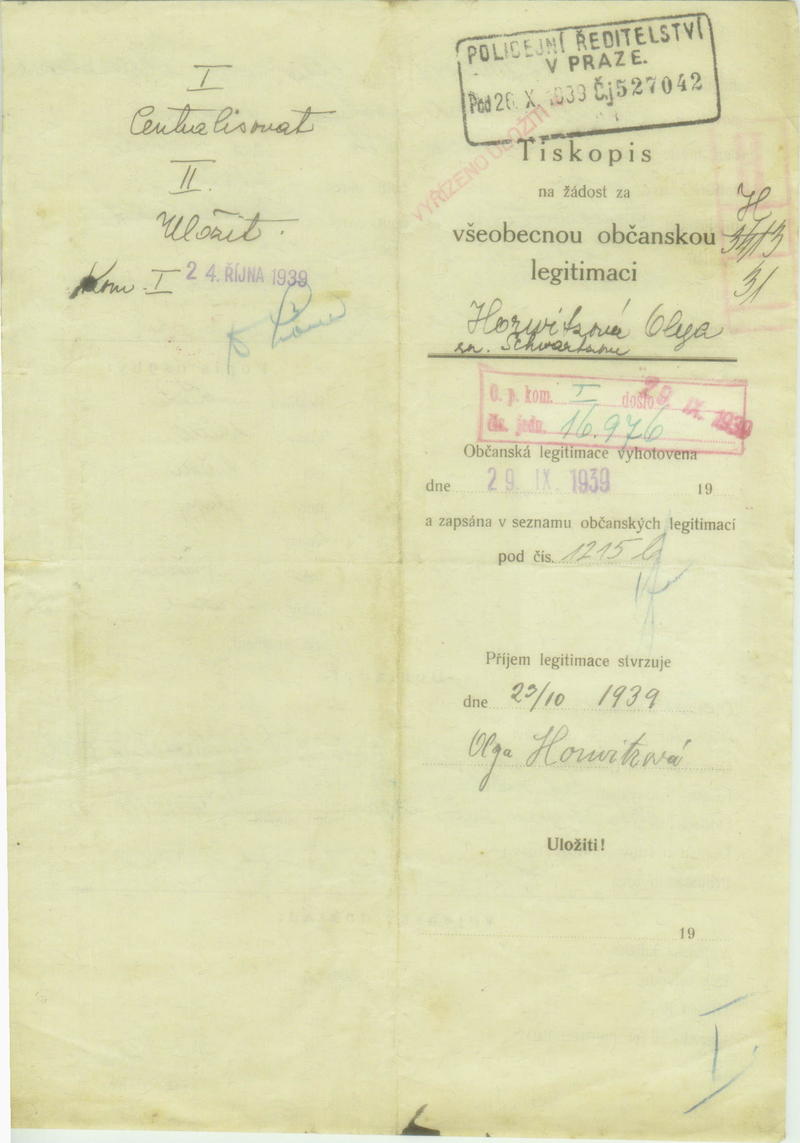 I
Centralisovat
II.
Uložit.
Kom. I 24. ŘÍJNA 1939
POLICEJNÍ ŘEDITELSTVÍ
V PRAZE.
Pod 26. X. 1939 Čj 527042
VYŘÍZENO ULOŽITI
Tiskopis
na žádost za
všeobecnou občanskou
legitimaci
H
3413
31
Horwitzová Olga
O. p. kom. I došlo 29. IX. 1939
čís. jedn. 16.976
Občanská legitimace vyhotovena
dne 29. IX. 1939 19
a zapsána v seznamu občanských legitimací
pod čís. 1215
Příjem legitimace stvrzuje
dne 23/10 1939
Olga Horwitzová
Uložiti!
19
I